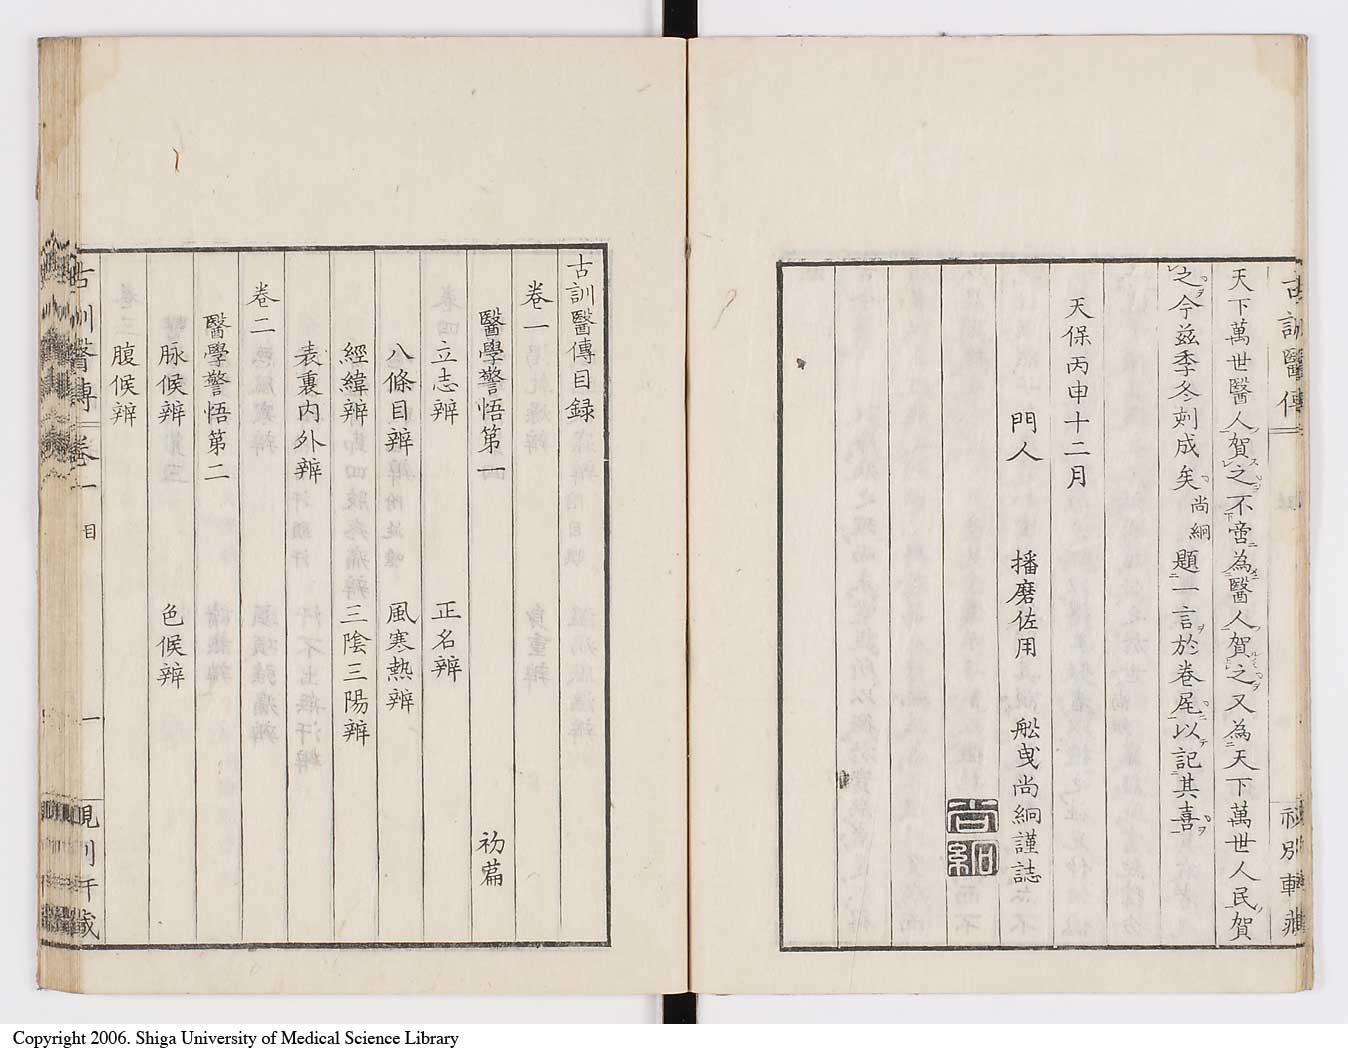 天下萬世醫人賀之不啻為醫人賀之又為天下萬世人民賀
之今茲季冬刻成矣尚絅題一言於卷尾以記其喜
天保丙申十二月
門人 播磨佐用 舩曳尚絅謹誌
尚絅
古訓醫傳目録
卷一
醫學警悟第一 初篇
立志辨 正名辨
八條目辨 風寒熱辨
經緯辨 三陰三陽辨
表裏内外辨
卷二
醫學警悟第二
脉候辨 色候辨
腹候辨
古訓醫傳 卷一 目 一
Copyright 2006. Shiga University of Medical Science Library